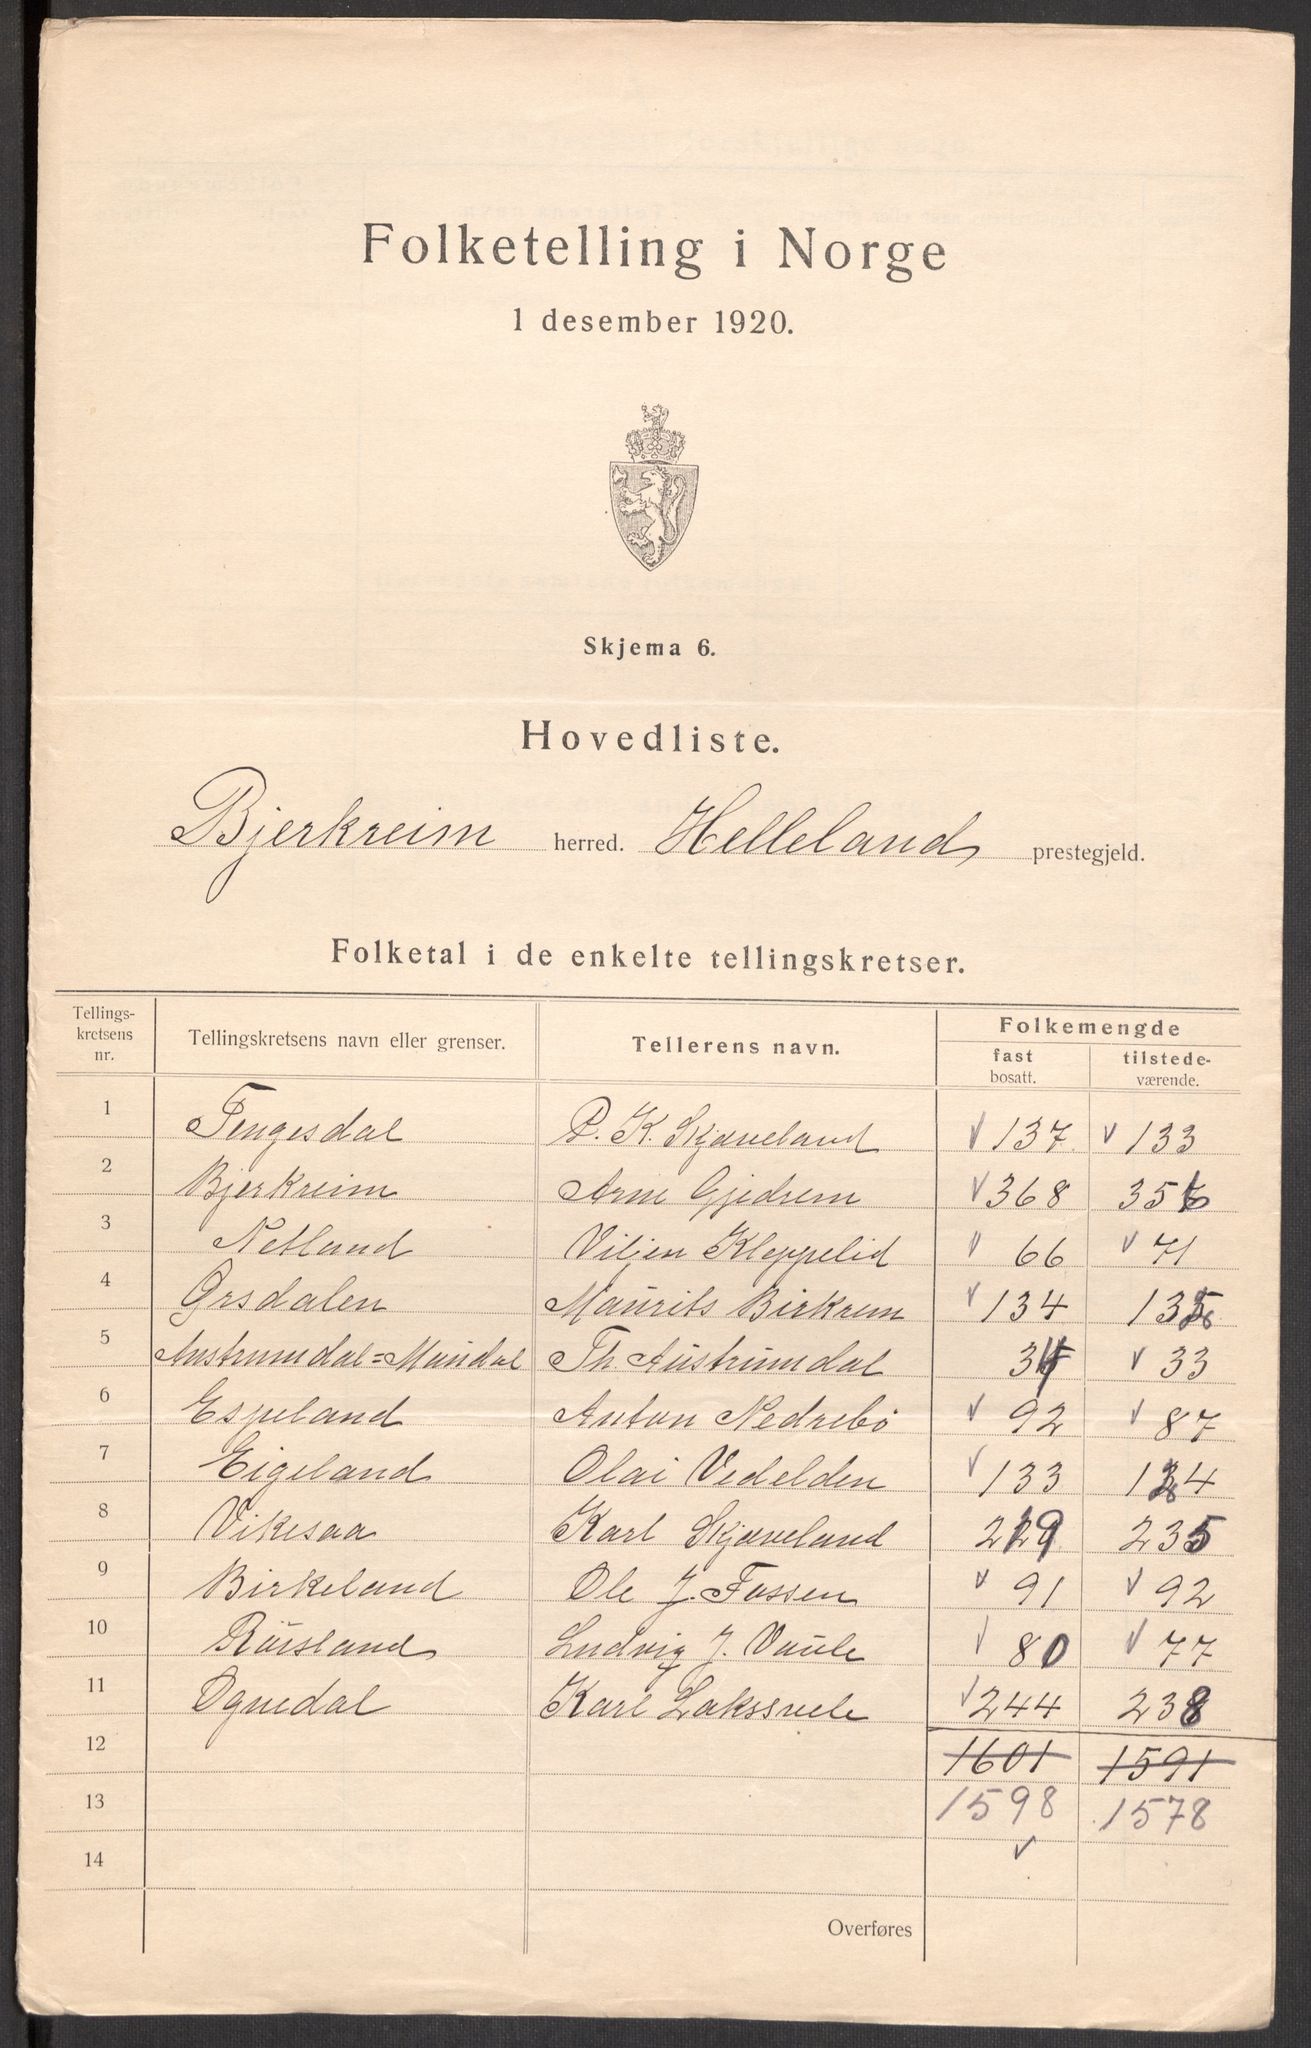 Folketelling i Norge
1 desember 1920.
Skjema 6.
Hovedliste.
Bjerkreim herred. Helleland prestegjeld.
Folketal i de enkelte tellingskretser.
Tellings-
kretsens
nr.
Tellingskretsens navn eller grenser.
Tellerens navn.
Folkemengde
fast
bosatt.
tilstede-
værende.
1 Tengesdal P. K. Skjæveland √ 137 √ 133
2 Bjerkreim Arne Gjedrem √ 368 356
3 Netland Viljen Kleppelid √ 66 √ 71
4 Ørsdalen Maurits Birkrem √ 134
5 Austrumdal=Maudal Th. Austrumdal √ 33
6 Espeland Anton Nedrebö √ 92 √ 87
7 Eigeland Olai Vedelden √ 133
8 Vikesaa Karl Skjæveland 219 235
9 Birkeland Ole J. Fossen √ 91 √ 92
10 Röisland Ludvig J. Vaule √ 80 √ 77
11 Ognedal Karl Lakssvele √ 244 238
12 1601 1591
13 1598 1578
14 √
Overføres